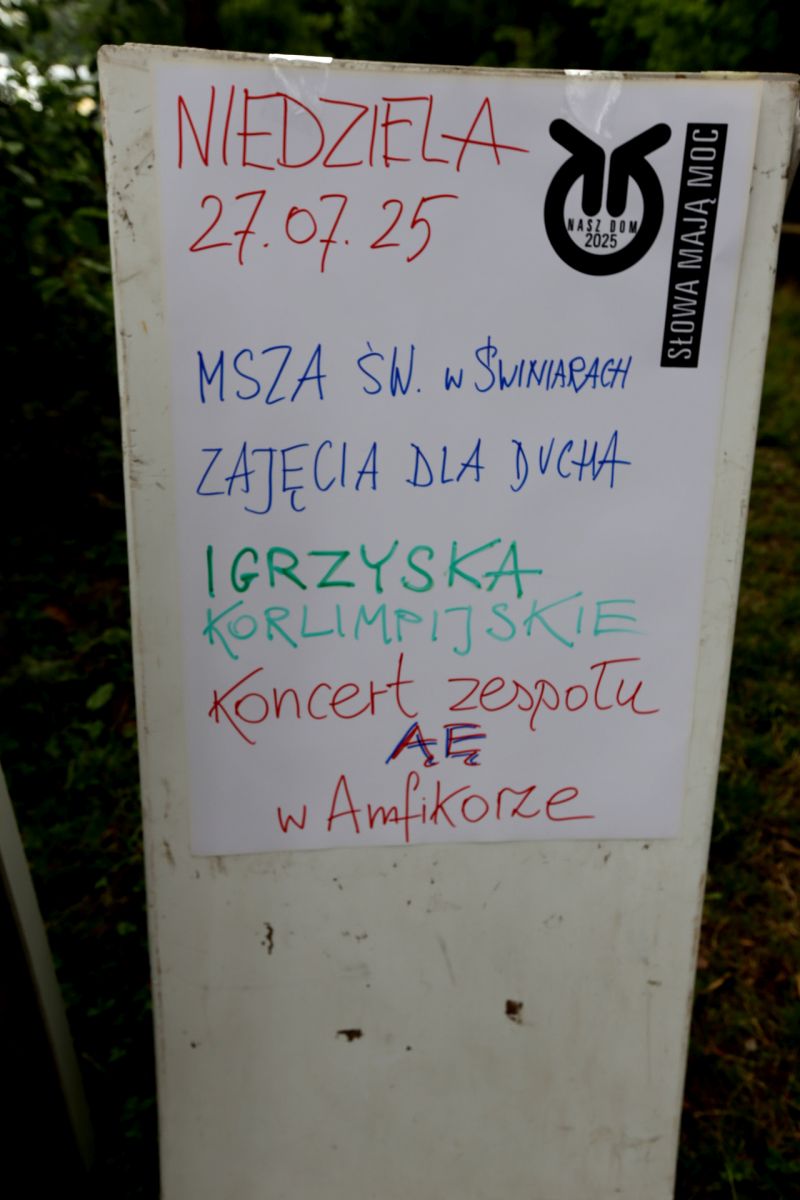 NIEDZIELA
27.07.25
NASZ DOM
2025
SŁOWA MAJĄ MOC
MSZA ŚW. w ŚWINIARACH
ZAJĘCIA DLA DUCHA
IGRZYSKA
KORLIMPIJSKIE
Koncert zespołu
ĄĘ
w Amfikorze